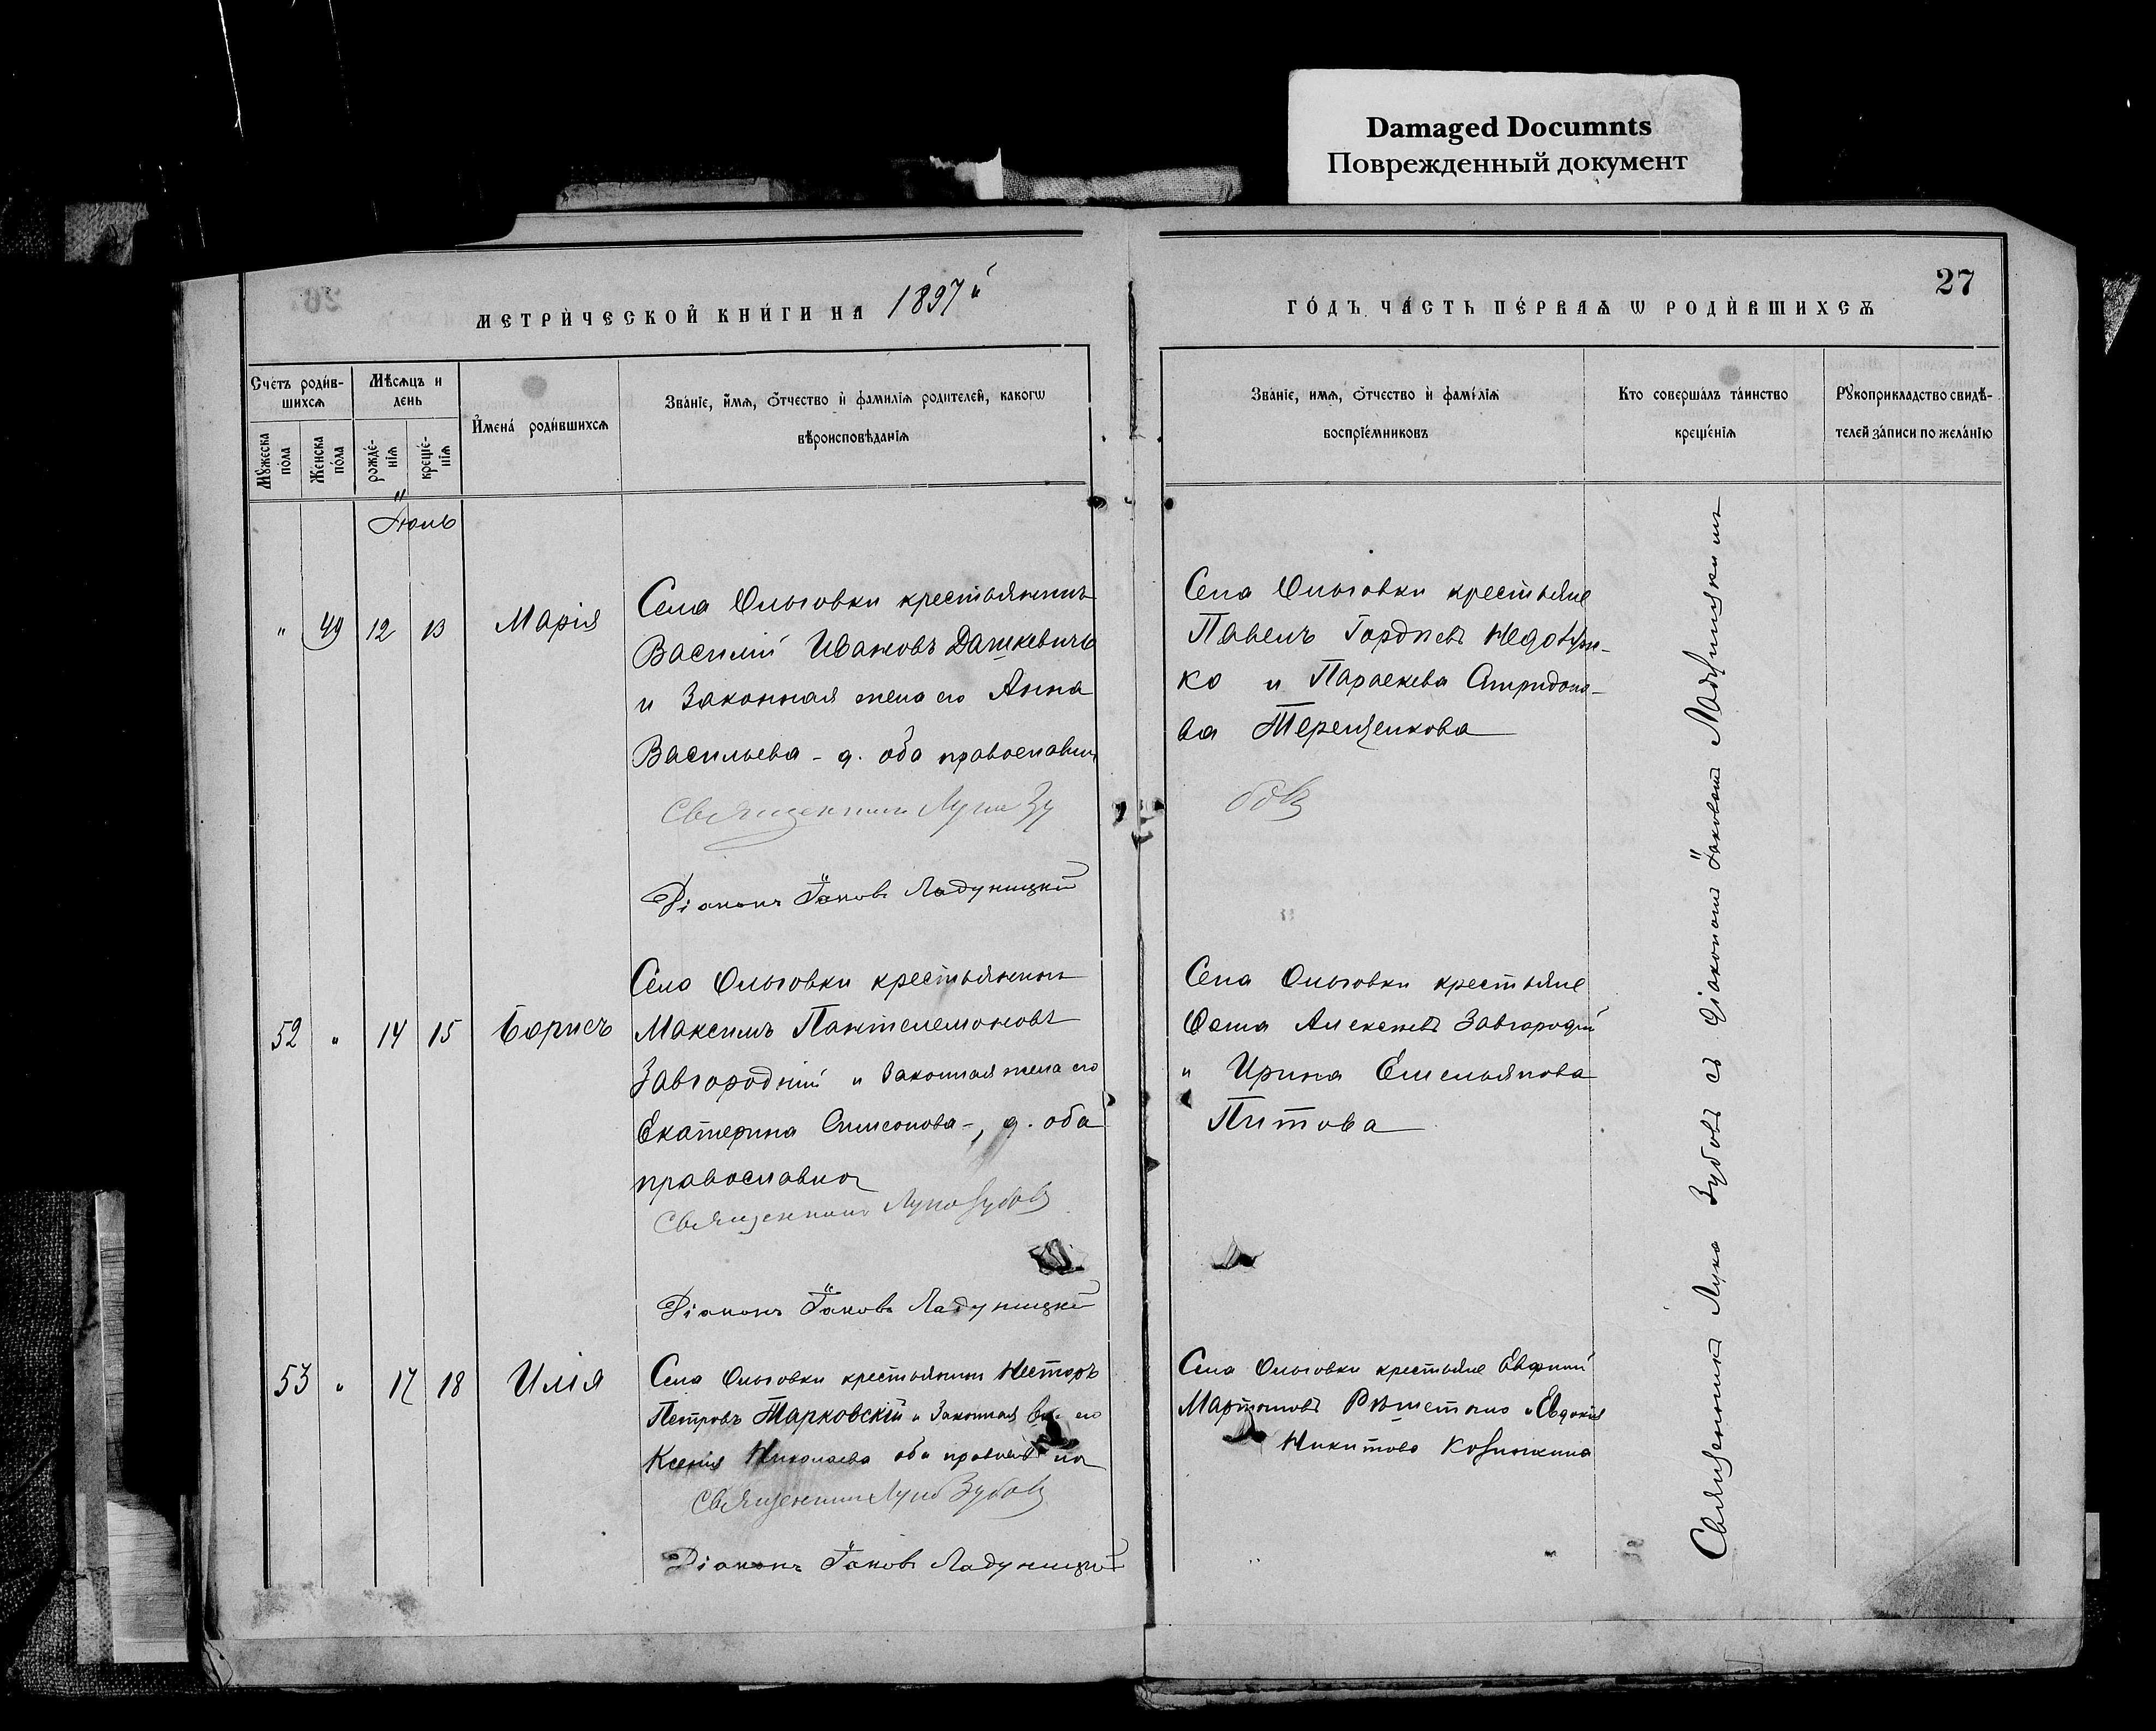 Damaged Documnts
Поврежденный документ
27
МЕТРИ́ЧЕСКОЙ КНИ́ГИ НА 1897й
ГО́ДЪ ЧА́СТЬ ПЕ́РВАѦ Ѡ РОДИ́ВШИХСѦ
Сче́тъ роди́в-
шихсѧ
Мꙋ́жеска
по́ла
Же́нска
по́ла
Мѣ́сѧцъ и
день
рожде́-
нїѧ
креще́-
нїѧ
И҆мена́ роди́вшихсѧ
Зва́нїе, и҆́мѧ, ѻ҆́тчество и҆ фами́лїѧ роди́телей, какогѡ
вѣроисповѣ́данїѧ
Зва́нїе, имѧ, ѻ҆́тчество и҆ фамі́лїѧ
воспрїе́мниковъ
Кто соверша́лъ та́инство
креще́нїѧ
Рꙋкоприкладство свидѣ́-
телей за́писи по жела́нїю
Іюль
" 49 12 13 Марія
Села Ольговки крестьянинъ
Василій Ивановъ Дашкевичъ
и законная жена его Анна
Васильева - д. оба православн
Священникъ Лука Зу
Діаконъ Іаковъ Ладуницкій
Села Ольговки крестьяне
Павелъ Гордиевъ
ко и Параскева Спиридоно-
ва Терещенкова
бовъ
52 " 14 15 Борисъ
Села Ольговки крестьянинъ
Максимъ Пантелемоновъ
Завгородній и законная жена его
Екатерина Симеонова -, д. оба
православно
Священникъ Лука Зубовъ
Діаконъ Іаковъ Ладуницкій
Села Ольговки крестьяне
Фома Алексеевъ Завгородній
и Ирина Емельянова
Питова
53 " 17 18 Илія
Села Ольговки крестьянинъ Несторъ
Петровъ Тарковскій и законная его
Ксенія Николаева оба
Священникъ Лука Зубовъ
Діаконъ Іаковъ Ладуницкій
Села Ольговки крестьяне Евфимій
Мартиновъ и Евдокія
Никитова
Священникъ Лука Зубовъ съ діакономъ Іаковомъ Ладуницкимъ